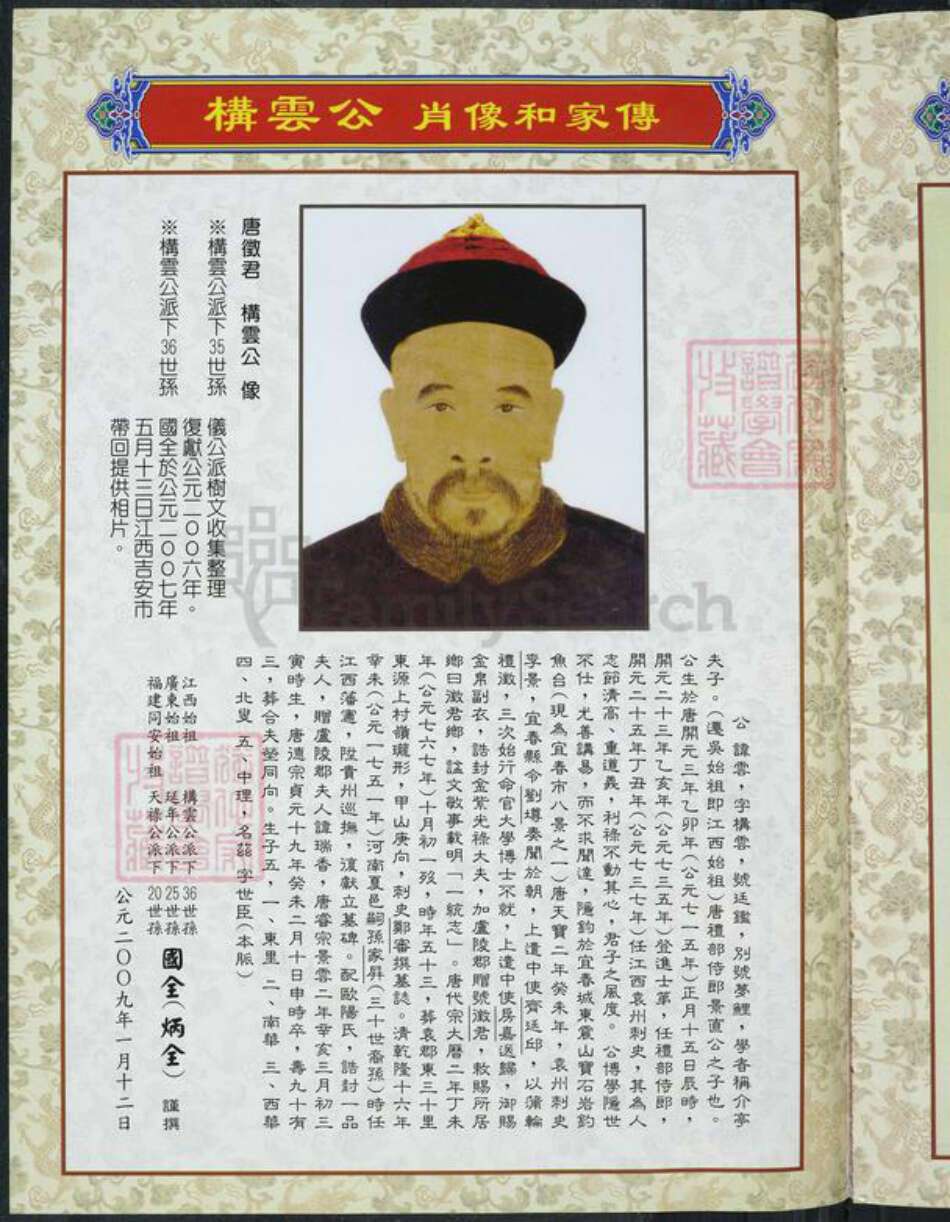 構雲公 肖像和家傳
唐徵君 構雲公 像
※構雲公派下35世孫 儀公派樹文收集整理
復獻公元二００六年。
※構雲公派下36世孫 國全於公元二００七年
五月十三日江西吉安市
帶回提供相片。
公諱雲，字構雲，號廷鑑，別號夢鯉，學者稱介亭
夫子。（遷吳始祖即江西始祖）唐禮部侍郎景直公之子也。
公生於唐開元三年乙卯年（公元七一五年）正月十五日辰時，
開元二十三年乙亥年（公元七三五年）登進士第，任禮部侍郎，
開元二十五年丁丑年（公元七三七年）任江西袁州刺史，其為人
志節清高、重道義，利祿不動其心，君子之風度。 公博學隱世
不仕，尤善講易，而不求聞達，隱釣於宜春城東震山寶石岩釣
魚台（現為宜春市八景之一）唐天寶二年癸未年，袁州刺史
李景，宜春縣令劉塼奏聞於朝，上遣中使齊廷邱，以蒲輪
禮徵，三次始行命官大學博士不就，上遣中使房嘉送歸，御賜
金帛副衣，誥封金紫光祿大夫，加盧陵郡贈號徵君，敕賜所居
鄉曰徵君鄉，謚文敏事載明「一統志」。唐代宗大曆二年丁未
年（公元七六七年）十月初一歿，時年五十三，葬袁郡東三十里
東源上村嶺瓏形，甲山庚向，刺史鄭審撰墓誌。清乾隆十六年
辛未（公元一七五一年）河南夏邑嗣孫家屏（三十世裔孫）時任
江西藩憲，陞貴州巡撫，復獻立墓碑。配歐陽氏，誥封一品
夫人，贈盧陵郡夫人諱瑞香，唐睿宗景雲二年辛亥三月初三
寅時生，唐德宗貞元十九年癸未二月十日申時卒，壽九十有
三，葬合夫塋同向。生子五，一、東里 二、南華 三、西華
四、北叟 五、中理，名 字世臣（本脈）
江西始祖 構雲公派下 36世孫
廣東始祖 延年公派下 25世孫 國全（炳全） 謹撰
福建同安始祖 天祿公派下 20世孫
公元二００九年一月十二日
譜學會
FamilySearch